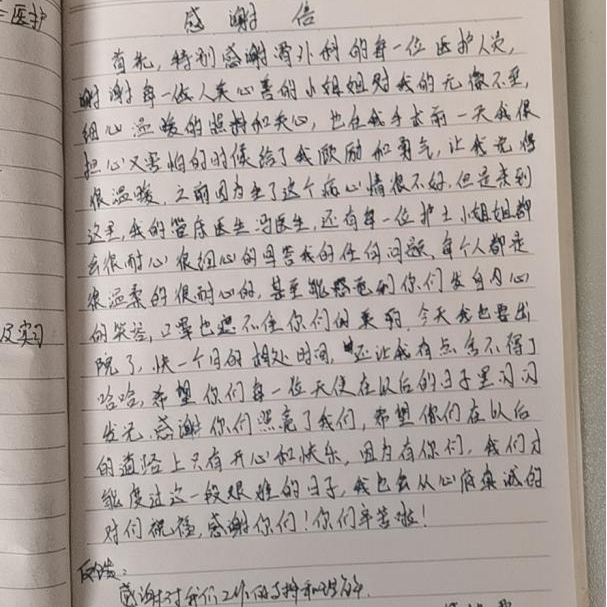 医护
感谢信
首先,特别感谢骨外科的每一位医护人员,
谢谢每一位人美心善的小姐姐对我的无微不至,
细心温暖的照料和关心,也在我手术前一天我很
担心又害怕的时候给了我鼓励和勇气,让我觉得
很温暖,之前因为生了这个病心情很不好,但是来到
这里,我的管床医生冯医生,还有每一位护士小姐姐都
会很耐心很细心的回答我的任何问题,每个人都是
很温柔的很耐心的,甚至能感觉到你们发自内心
的笑容,口罩也遮不住你们的美丽,今天我也要出
院了,快一个月的相处时间,还让我有点舍不得了
哈哈,希望你们每一位天使在以后的日子里闪闪
发光,感谢你们照亮了我们,希望你们在以后
的道路上只有开心和快乐,因为有你们,我们才
能度过这一段艰难的日子,我也会从心底真诚的
对们祝福,感谢你们!你们辛苦啦!
及实习
反馈:
感谢对我们工作的支持和理解.